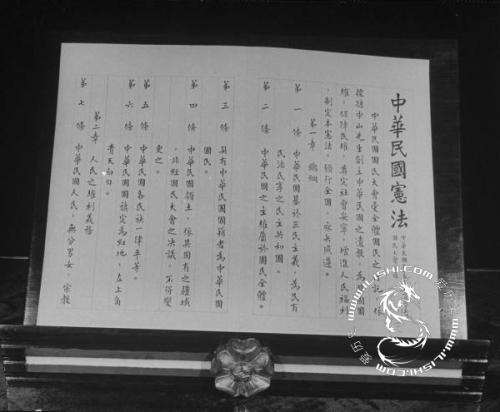 中華民國憲法
中華民國
國民大會
中華民國國民大會受全體國民之　，依
據孫中山先生創立中華民國之遺教，為　固國
權，保障民權，奠定社會安寧，增進人民福利
，制定本憲法，頒行全國，永矢咸遵。
第一章　總綱
第一條　中華民國基於三民主義，為民有
民治民享之民主共和國。
第二條　中華民國之主權屬於國民全體。
第三條　具有中華民國國籍者為中華民國
國民。
第四條　中華民國領土，依其固有之疆域
，非經國民大會之決議，不得變
更之。
第五條　中華民國各民族一律平等。
第六條　中華民國國旗定為紅地，左上角
青天白日。
第二章　人民之權利義務
第七條　中華民國人民，無分男女，宗教
爱历史
WWW.ILISHI.COM